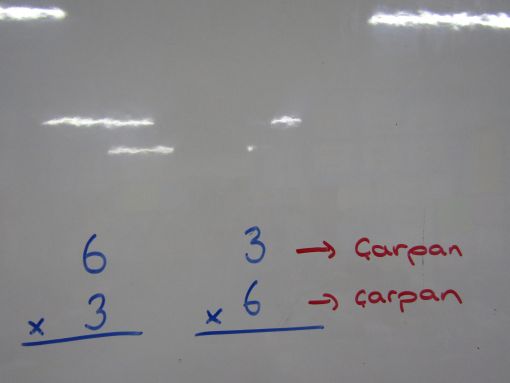 6 3 → Çarpan
x 3 x 6 → çarpan